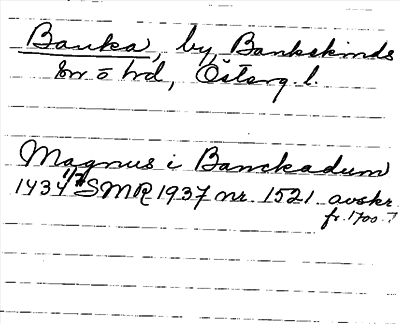 Banka, by, Bankekinds
sn o hd, Österg. l.
Magnus i Banckadum
1434 1/7 SMR 1937 nr. 1521 avskr.
fr. 1700-t